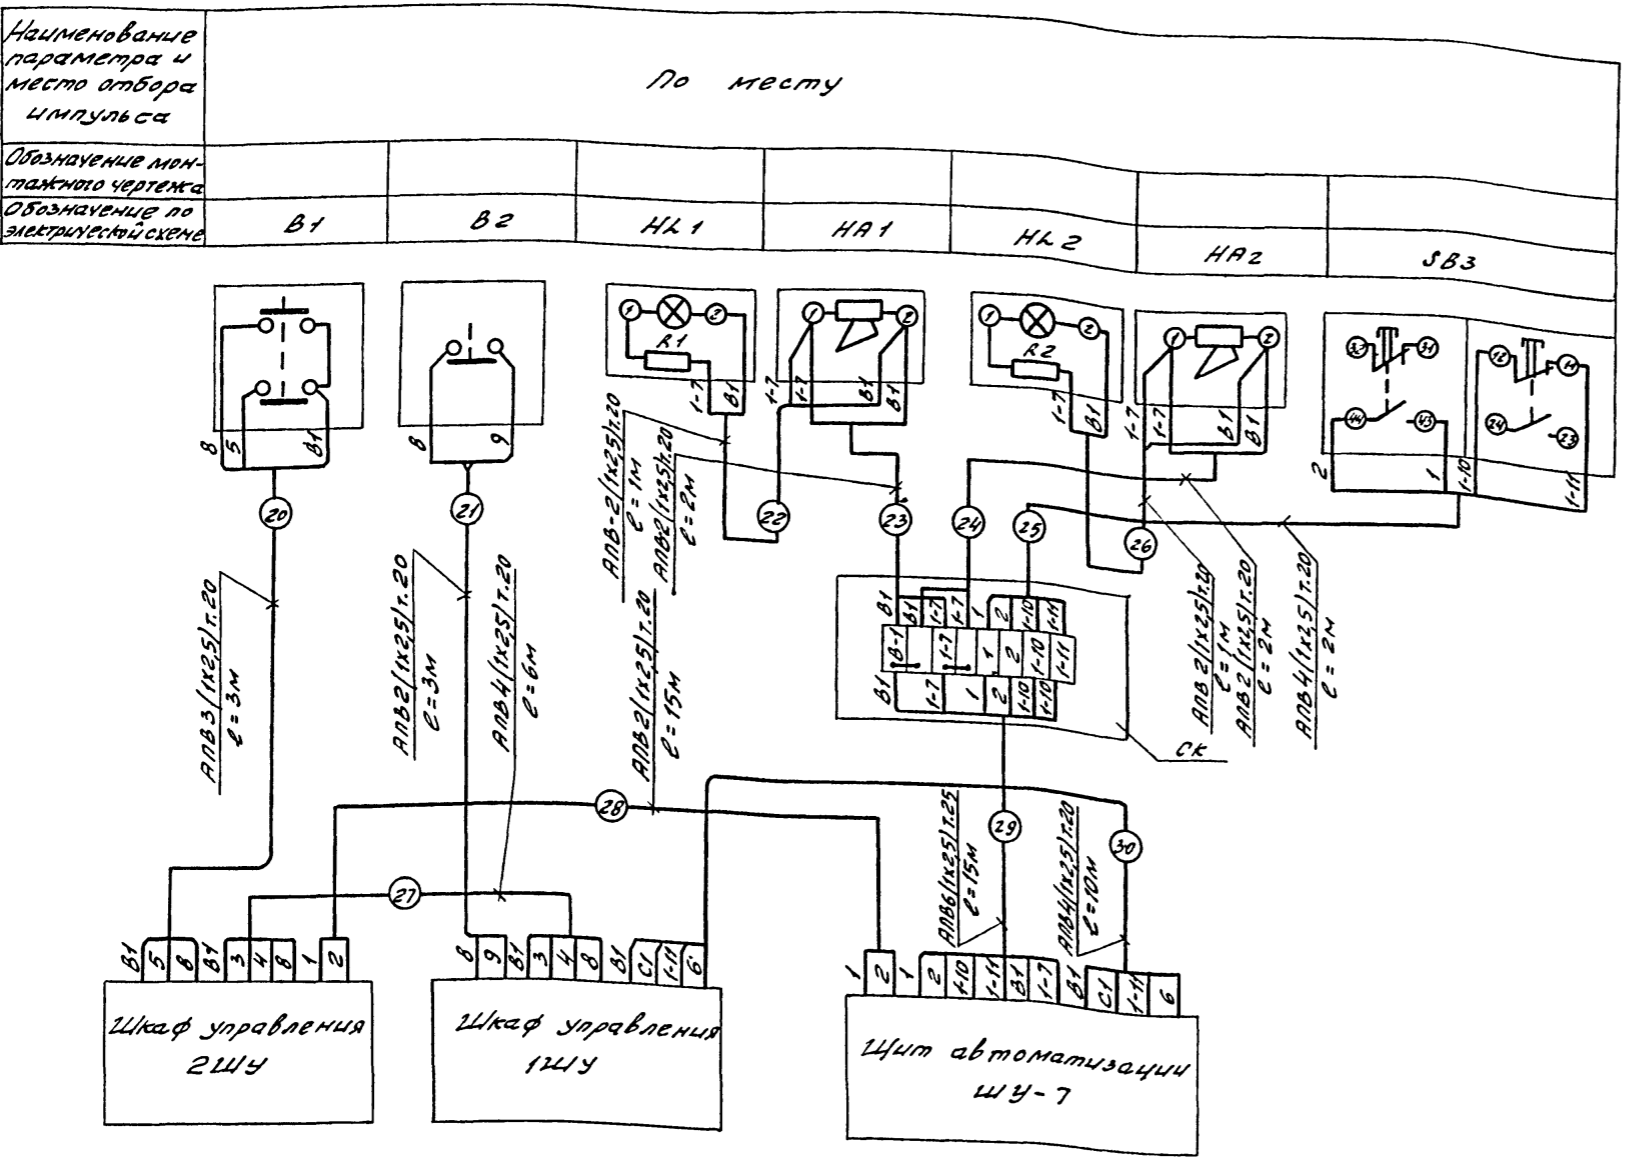 Наименование
параметра и
место отбора
импульса
По месту
Обозначение мон-
тажного чертежа
Обозначение по
электрической схеме
В1
В2
HL1
HA1
HL2
HA2
SB3
1
2
R1
1
2
1
2
R2
1
2
32
31
12
11
44
43
24
23
8
5
В1
8
9
1-7
В1
1-7
1-7
В1
В1
1-7
В1
1-7
1-7
В1
В1
2
1
1-10
1-11
20
21
22
23
24
25
26
АПВ3(1х2,5)т.20
ℓ=3м
АПВ2(1х2,5)т.20
ℓ=3м
АПВ4(1х2,5)т.20
ℓ=6м
АПВ-2(1х2,5)т.20
ℓ=1м
АПВ-2(1х2,5)т.20
ℓ=2м
АПВ2(1х2,5)т.20
ℓ=15м
АПВ2(1х2,5)т.20
ℓ=1м
АПВ2(1х2,5)т.20
ℓ=2м
АПВ4(1х2,5)т.20
ℓ=2м
В1
В1
1-7
1-7
1
2
1-10
1-11
В-1
1-7
1
2
1-10
1-11
В1
1-7
1
2
1-10
1-10
СК
АПВ6(1х2,5)т.25
ℓ=15м
АПВ4(1х2,5)т.20
ℓ=10м
27
28
29
30
В1
5
8
В1
3
4
8
1
2
8
9
В1
3
4
8
В1
С1
1-11
6
1
2
1
2
1-10
1-11
В1
1-7
В1
С1
1-11
6
Шкаф управления
2ШУ
Шкаф управления
1ШУ
Щит автоматизации
ШУ-7